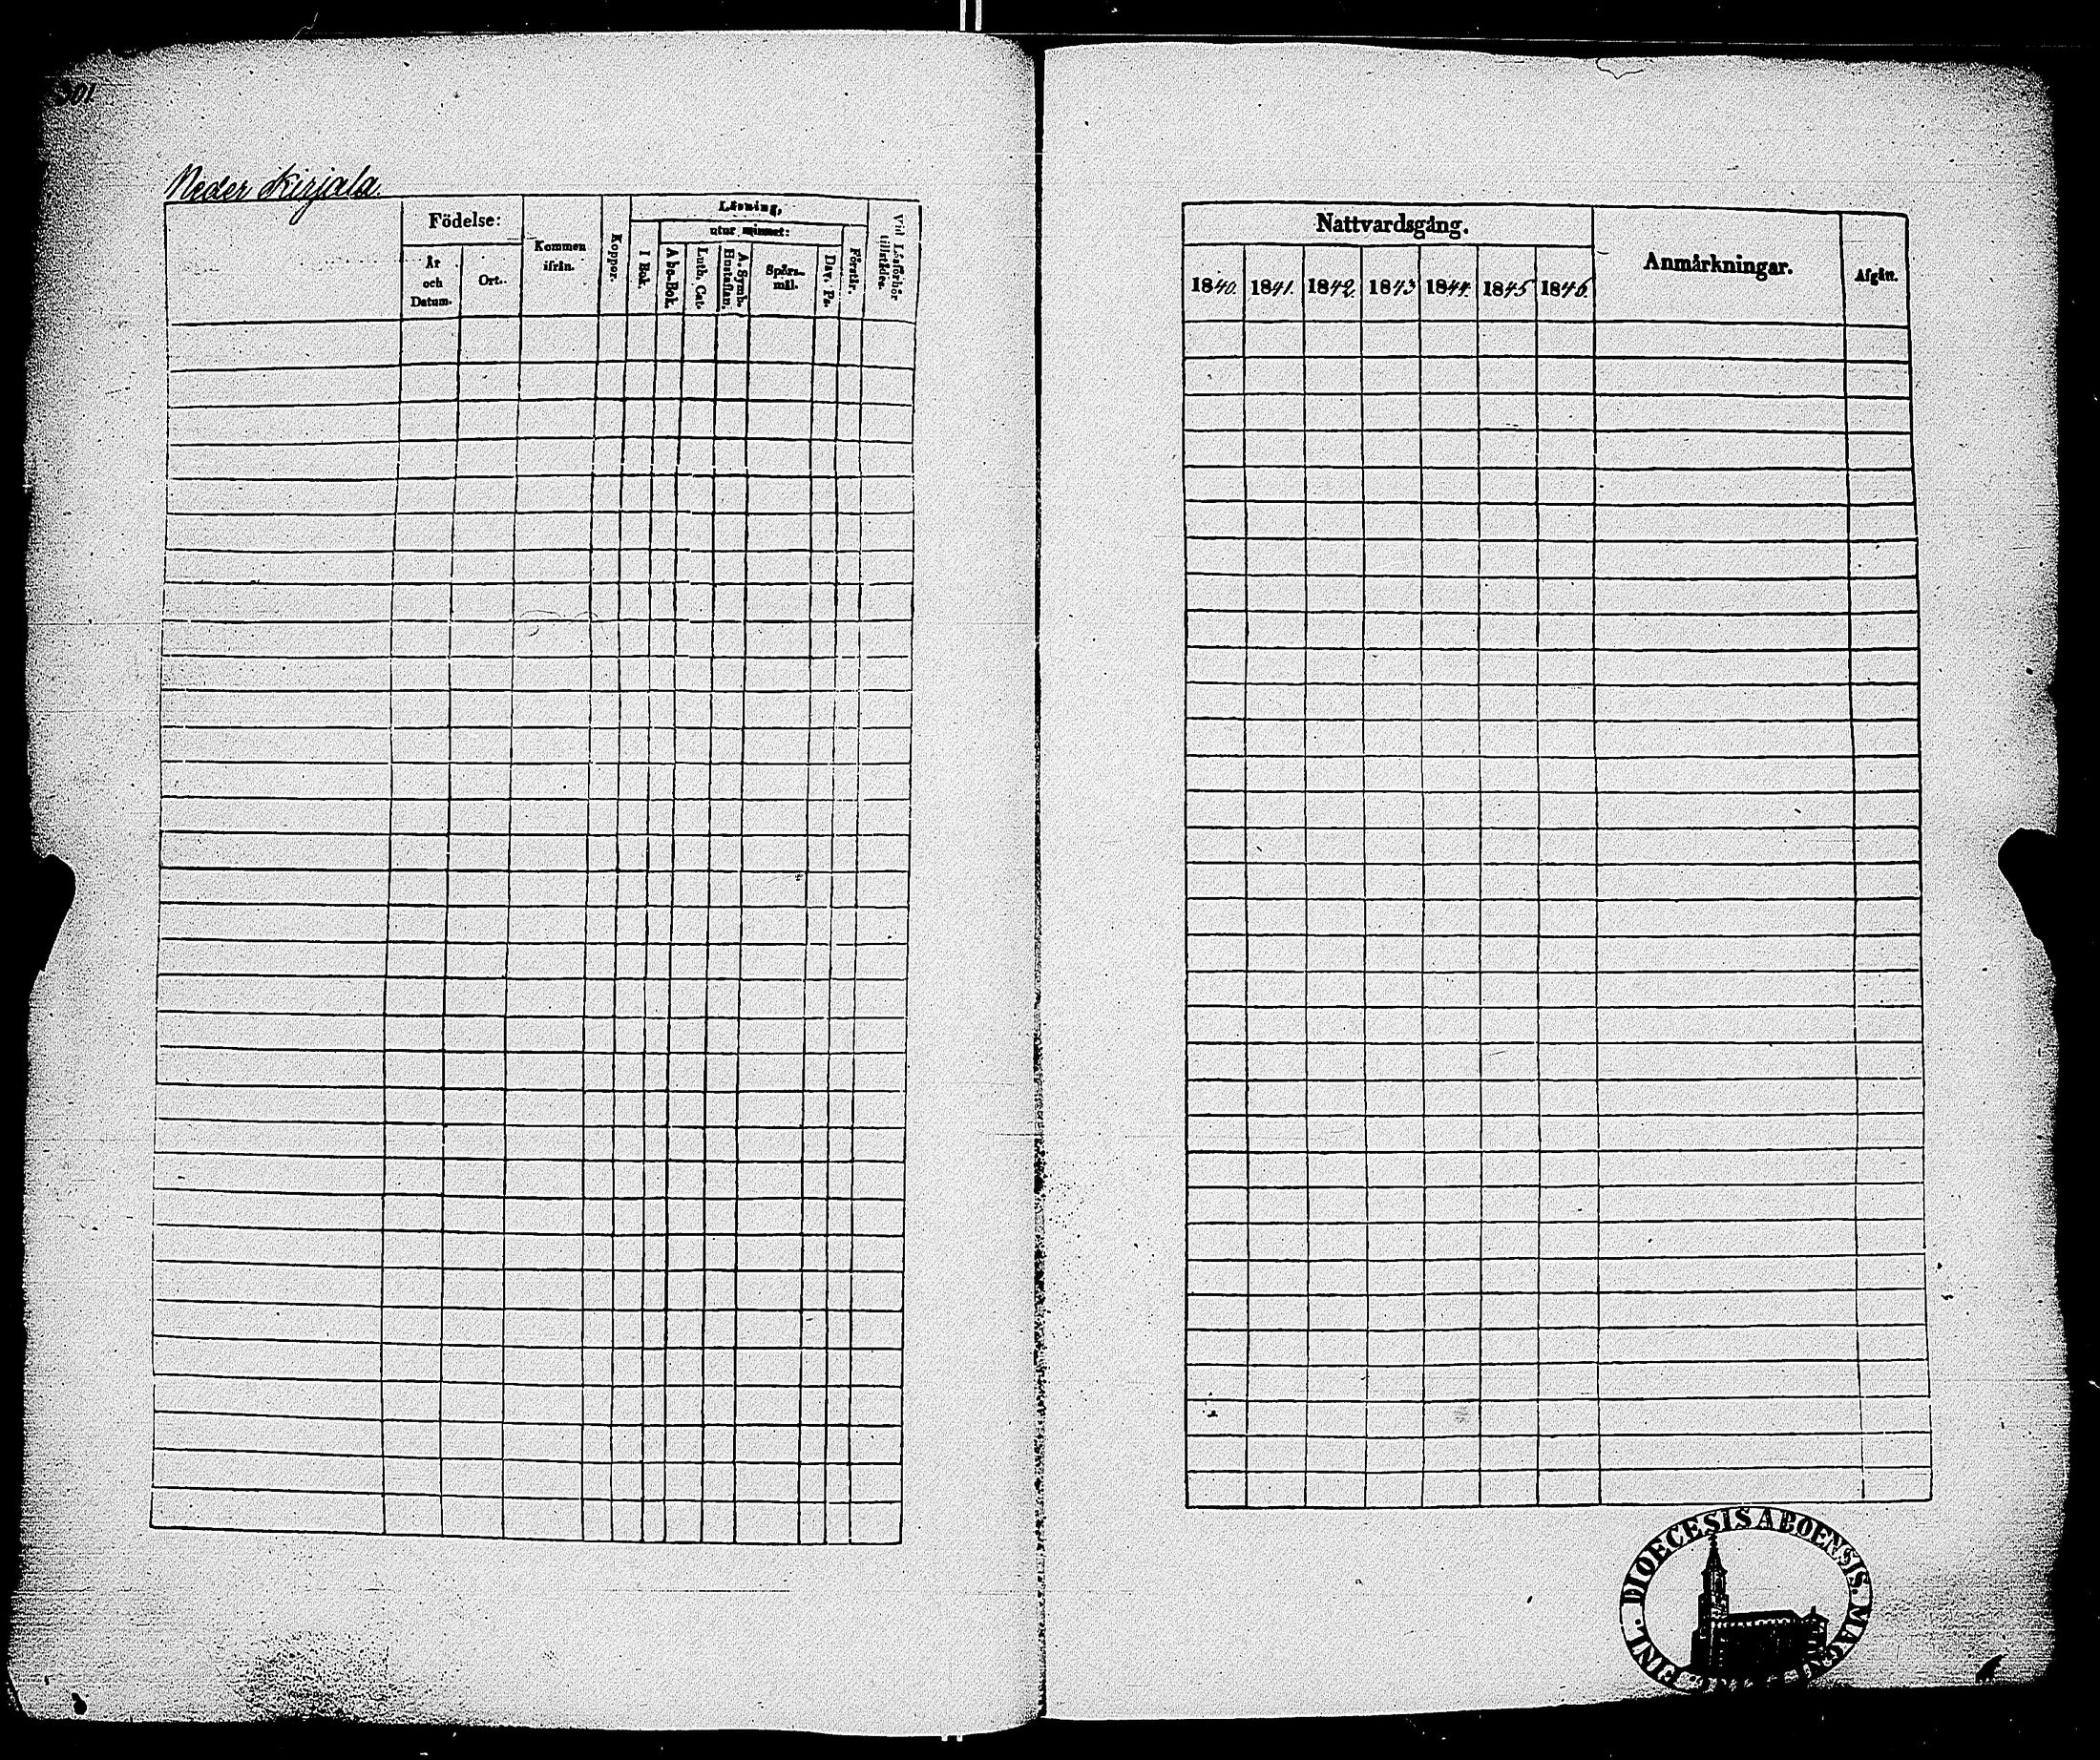 Neder Kirjala.
Födelse:
År
och
Datum.
Ort.
Kommen
ifrån.
Koppor.
Läsning,
utur minnet:
I Bok.
Abc-Bok.
Luth. Cat.
A. Symb.
Hustaflan.
Spörs-
mål.
Dav. Ps.
Förstår.
Vid Läsförhör
tillstädes.
Nattvardsgång.
1840. 1841. 1842. 1843 1844. 1845 1846.
Anmärkningar.
Afgått.
FINL. DIOECESIS ABOENSIS. MAGNI